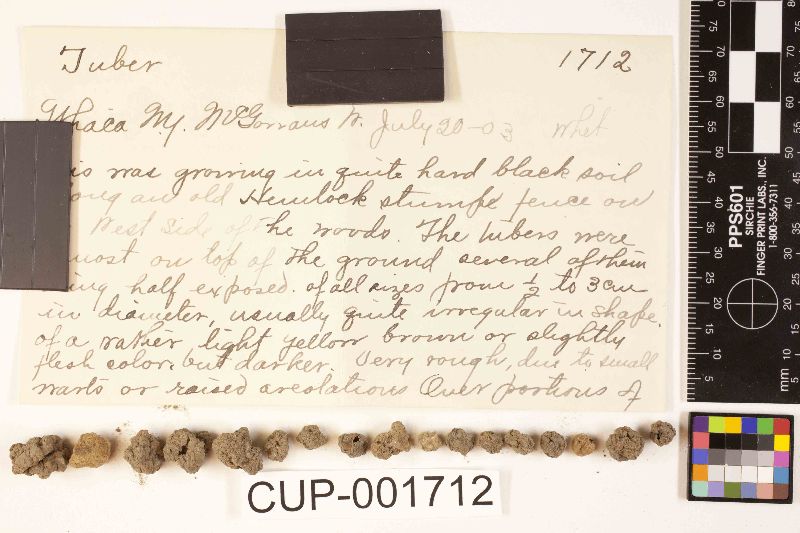 Tuber 1712
Ithaca NY. McGowans W. July 20-03 Whet
was growing in quite hard black soil
an old Hemlock stump fence on
West side of the woods. The tubers were
most on top of the ground several of them
ing half exposed. of all sizes from ½ to 3 cm
in diameter, usually quite irregular in shape.
of a rather light yellow brown or slightly
flesh color, but darker. Very rough, due to small
warts or raised areolations Over portions of
CUP-001712
PPS601
SIRCHIE
FINGER PRINT LABS, INC.
1-800-356-7311
mm 5 10 15 20 25 30 35 40 45 50 55 60 65 70 75 80